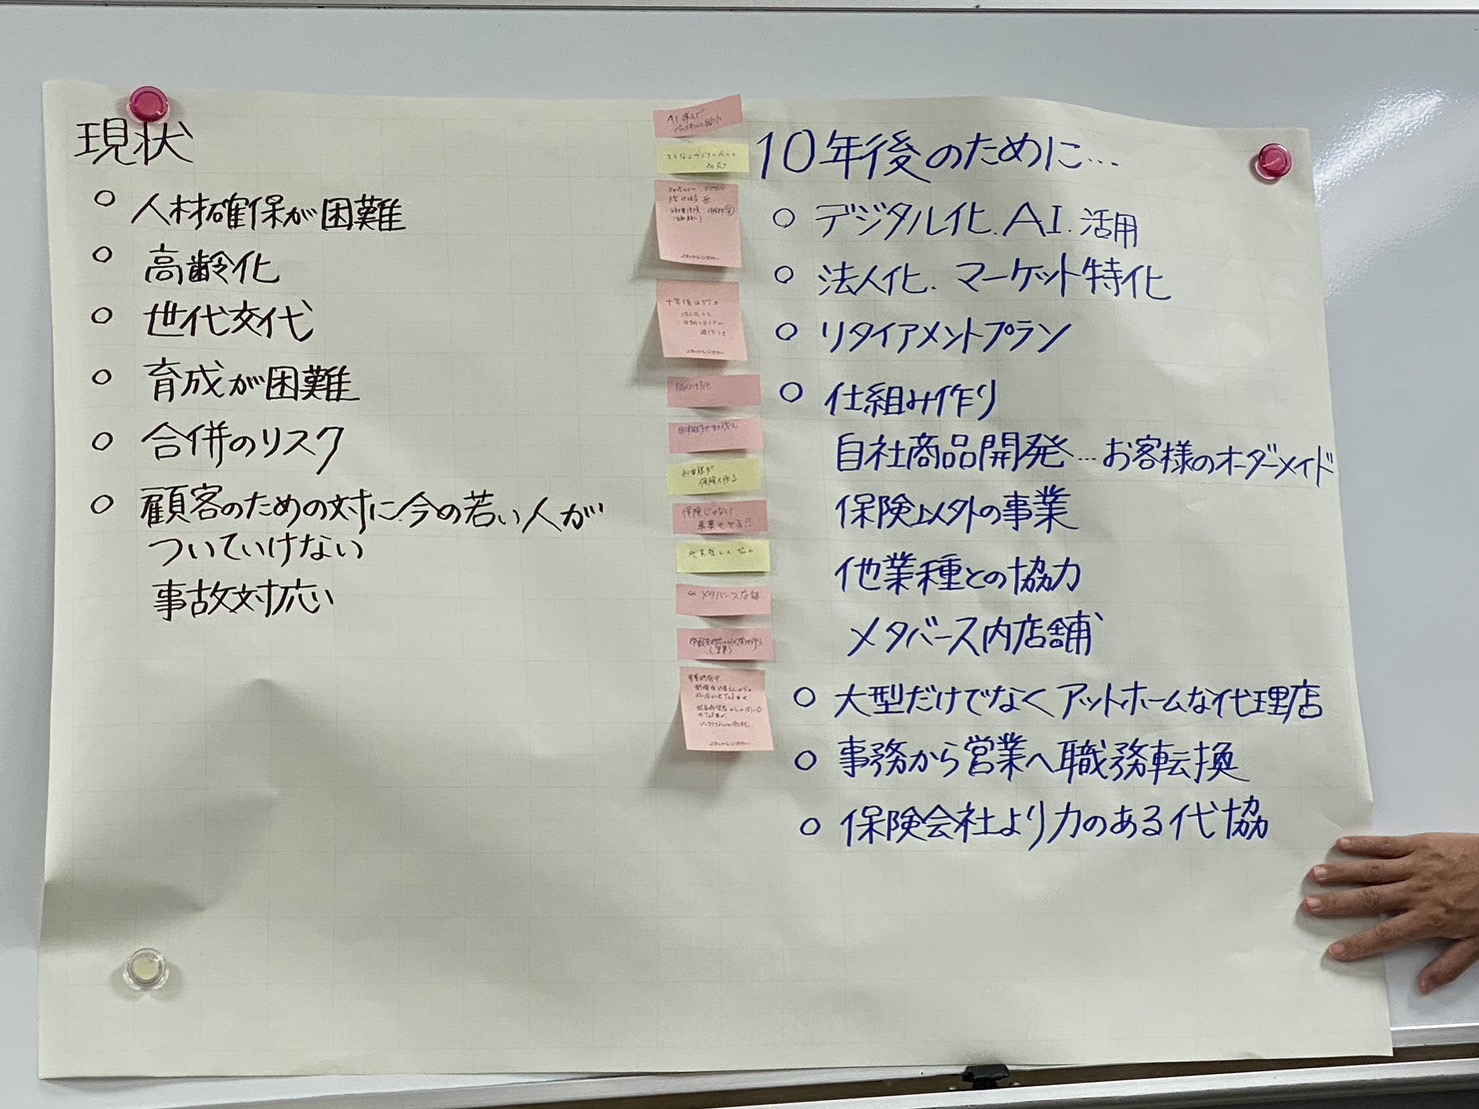 現状
○ 人材確保が困難
○ 高齢化
○ 世代交代
○ 育成が困難
○ 合併のリスク
○ 顧客のための対に今の若い人が
ついていけない
事故対応い
10年後のために…
○ デジタル化、AI、活用
○ 法人化、マーケット特化
○ リタイアメントプラン
○ 仕組み作り
自社商品開発…お客様のオーダーメイド
保険以外の事業
他業種との協力
メタバース内店舗
○ 大型だけでなくアットホームな代理店
○ 事務から営業へ職務転換
○ 保険会社より力のある代協
AI導入で
十年後は57才
お客様が
保険を作る
保険じゃない
事業もやる!!
メタバース店舗